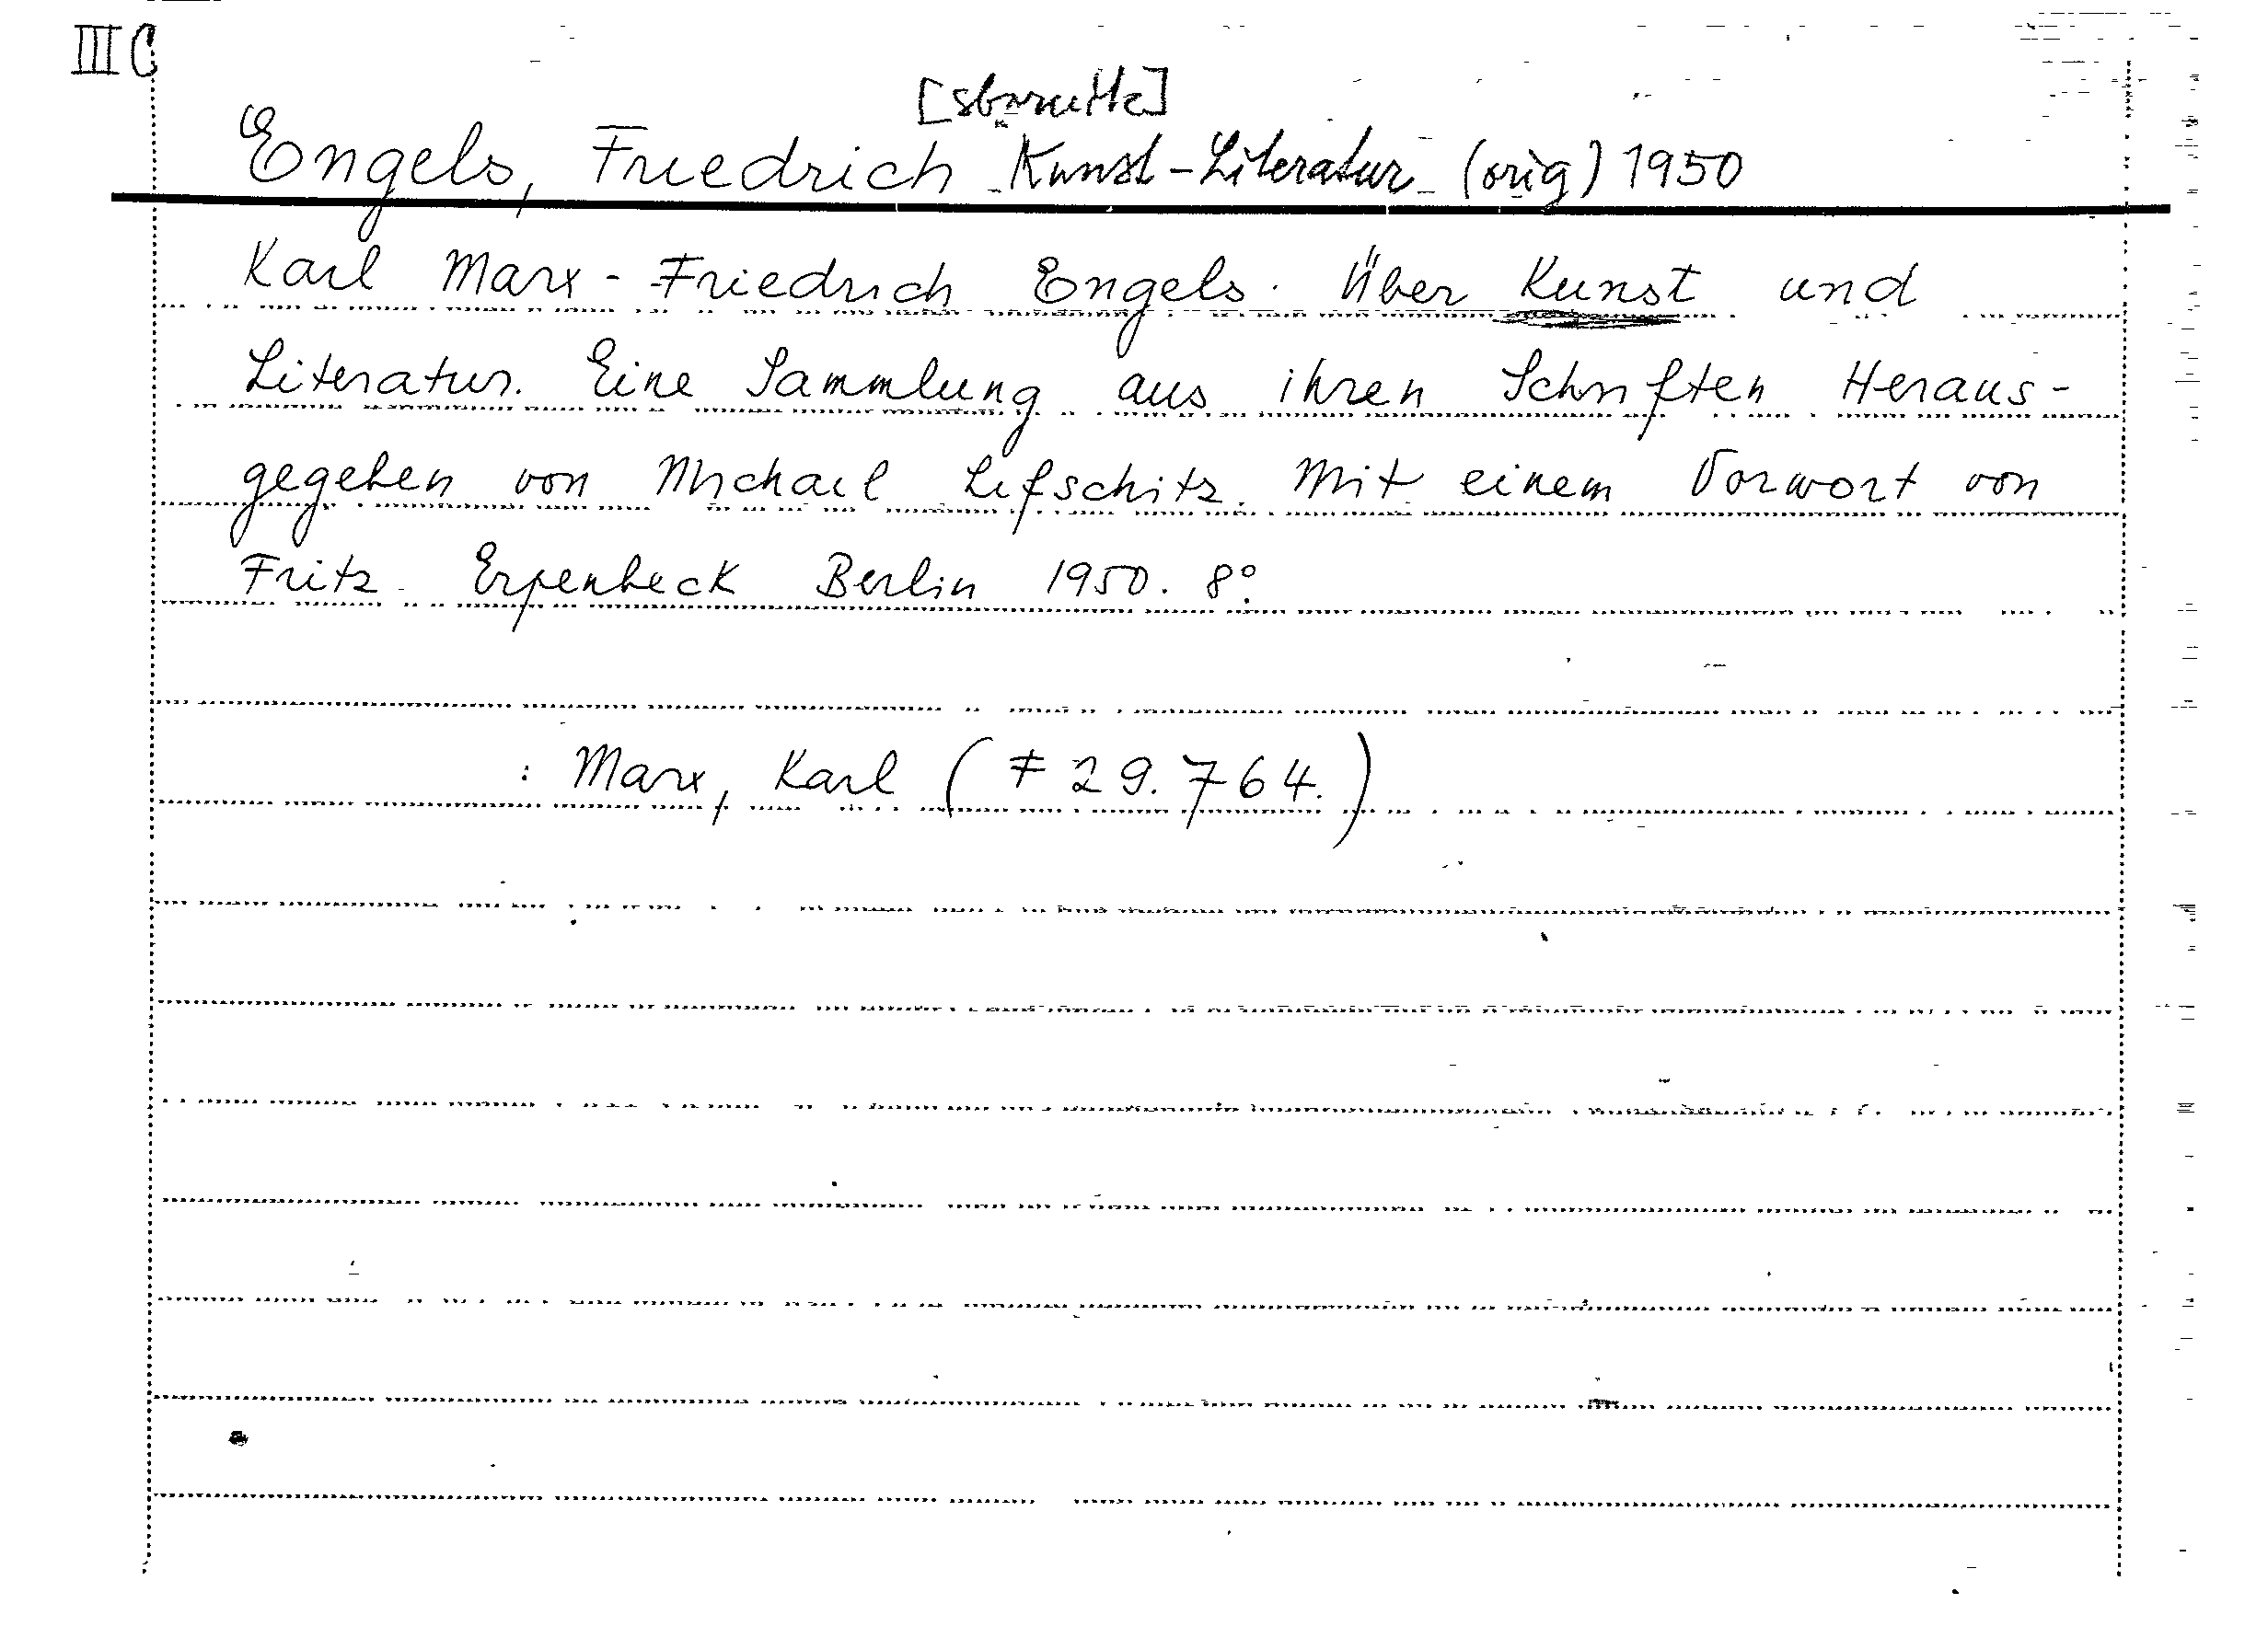 III C
Engels, Friedrich Kunst-Literatur (orig) 1950
Karl Marx - Friedrich Engels. Über Kunst und
Literatur. Eine Sammlung aus ihren Schriften Heraus-
gegeben von Michail Lifschitz. Mit einem Vorwort von
Fritz Erpenbeck Berlin 1950. 8°.
: Marx, Karl (F 29.764.)